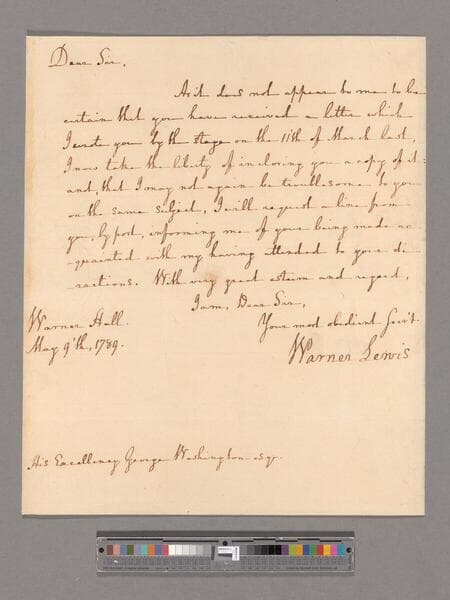 Dear Sir,
As it does not appear to me to be
certain that you have received a letter which
I wrote you by the stage on the 11th of March last,
I now take the liberty of inclosing you a copy of it:
and, that I may not again be troublesome to you
on the same subject, I will request a line from
you, by post, informing me of your being made ac-
-quainted with my having attended to your di-
-rections. With very great esteem and regard,
I am, Dear Sir,
Your most obedient Serv't.
Warner Lewis
Warner Hall.
May 9'th, 1789.
His Excellency George Washington esqr.